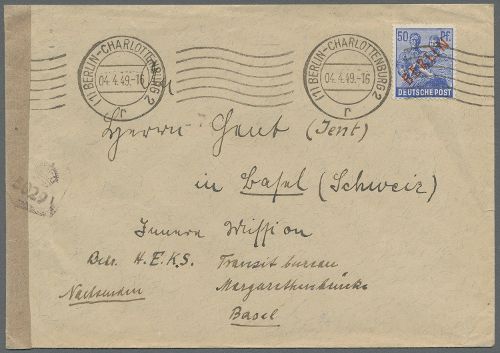 (1) BERLIN-CHARLOTTENBURG 2
04.4.49.-16
r
(1) BERLIN-CHARLOTTENBURG 2
04.4.49.-16
r
50 PF.
BERLIN
DEUTSCHE POST
Herrn Gent (Jent)
in Basel (Schweiz)
Innere Mission
Betr. H.E.K.S. Transit bureau
Nachsenden Margarethenbrücke
Basel